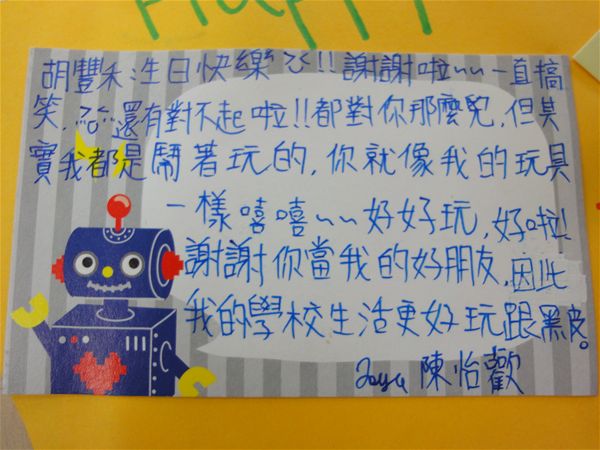 Happy
胡豐禾:生日快樂ㄛ!!謝謝啦~~一直搞
笑,還有對不起啦!!都對你那麼兇,但其
實我都是鬧著玩的,你就像我的玩具
一樣嘻嘻~~好好玩,好啦!
謝謝你當我的好朋友,因此
我的學校生活更好玩跟黑皮。
陳怡歡